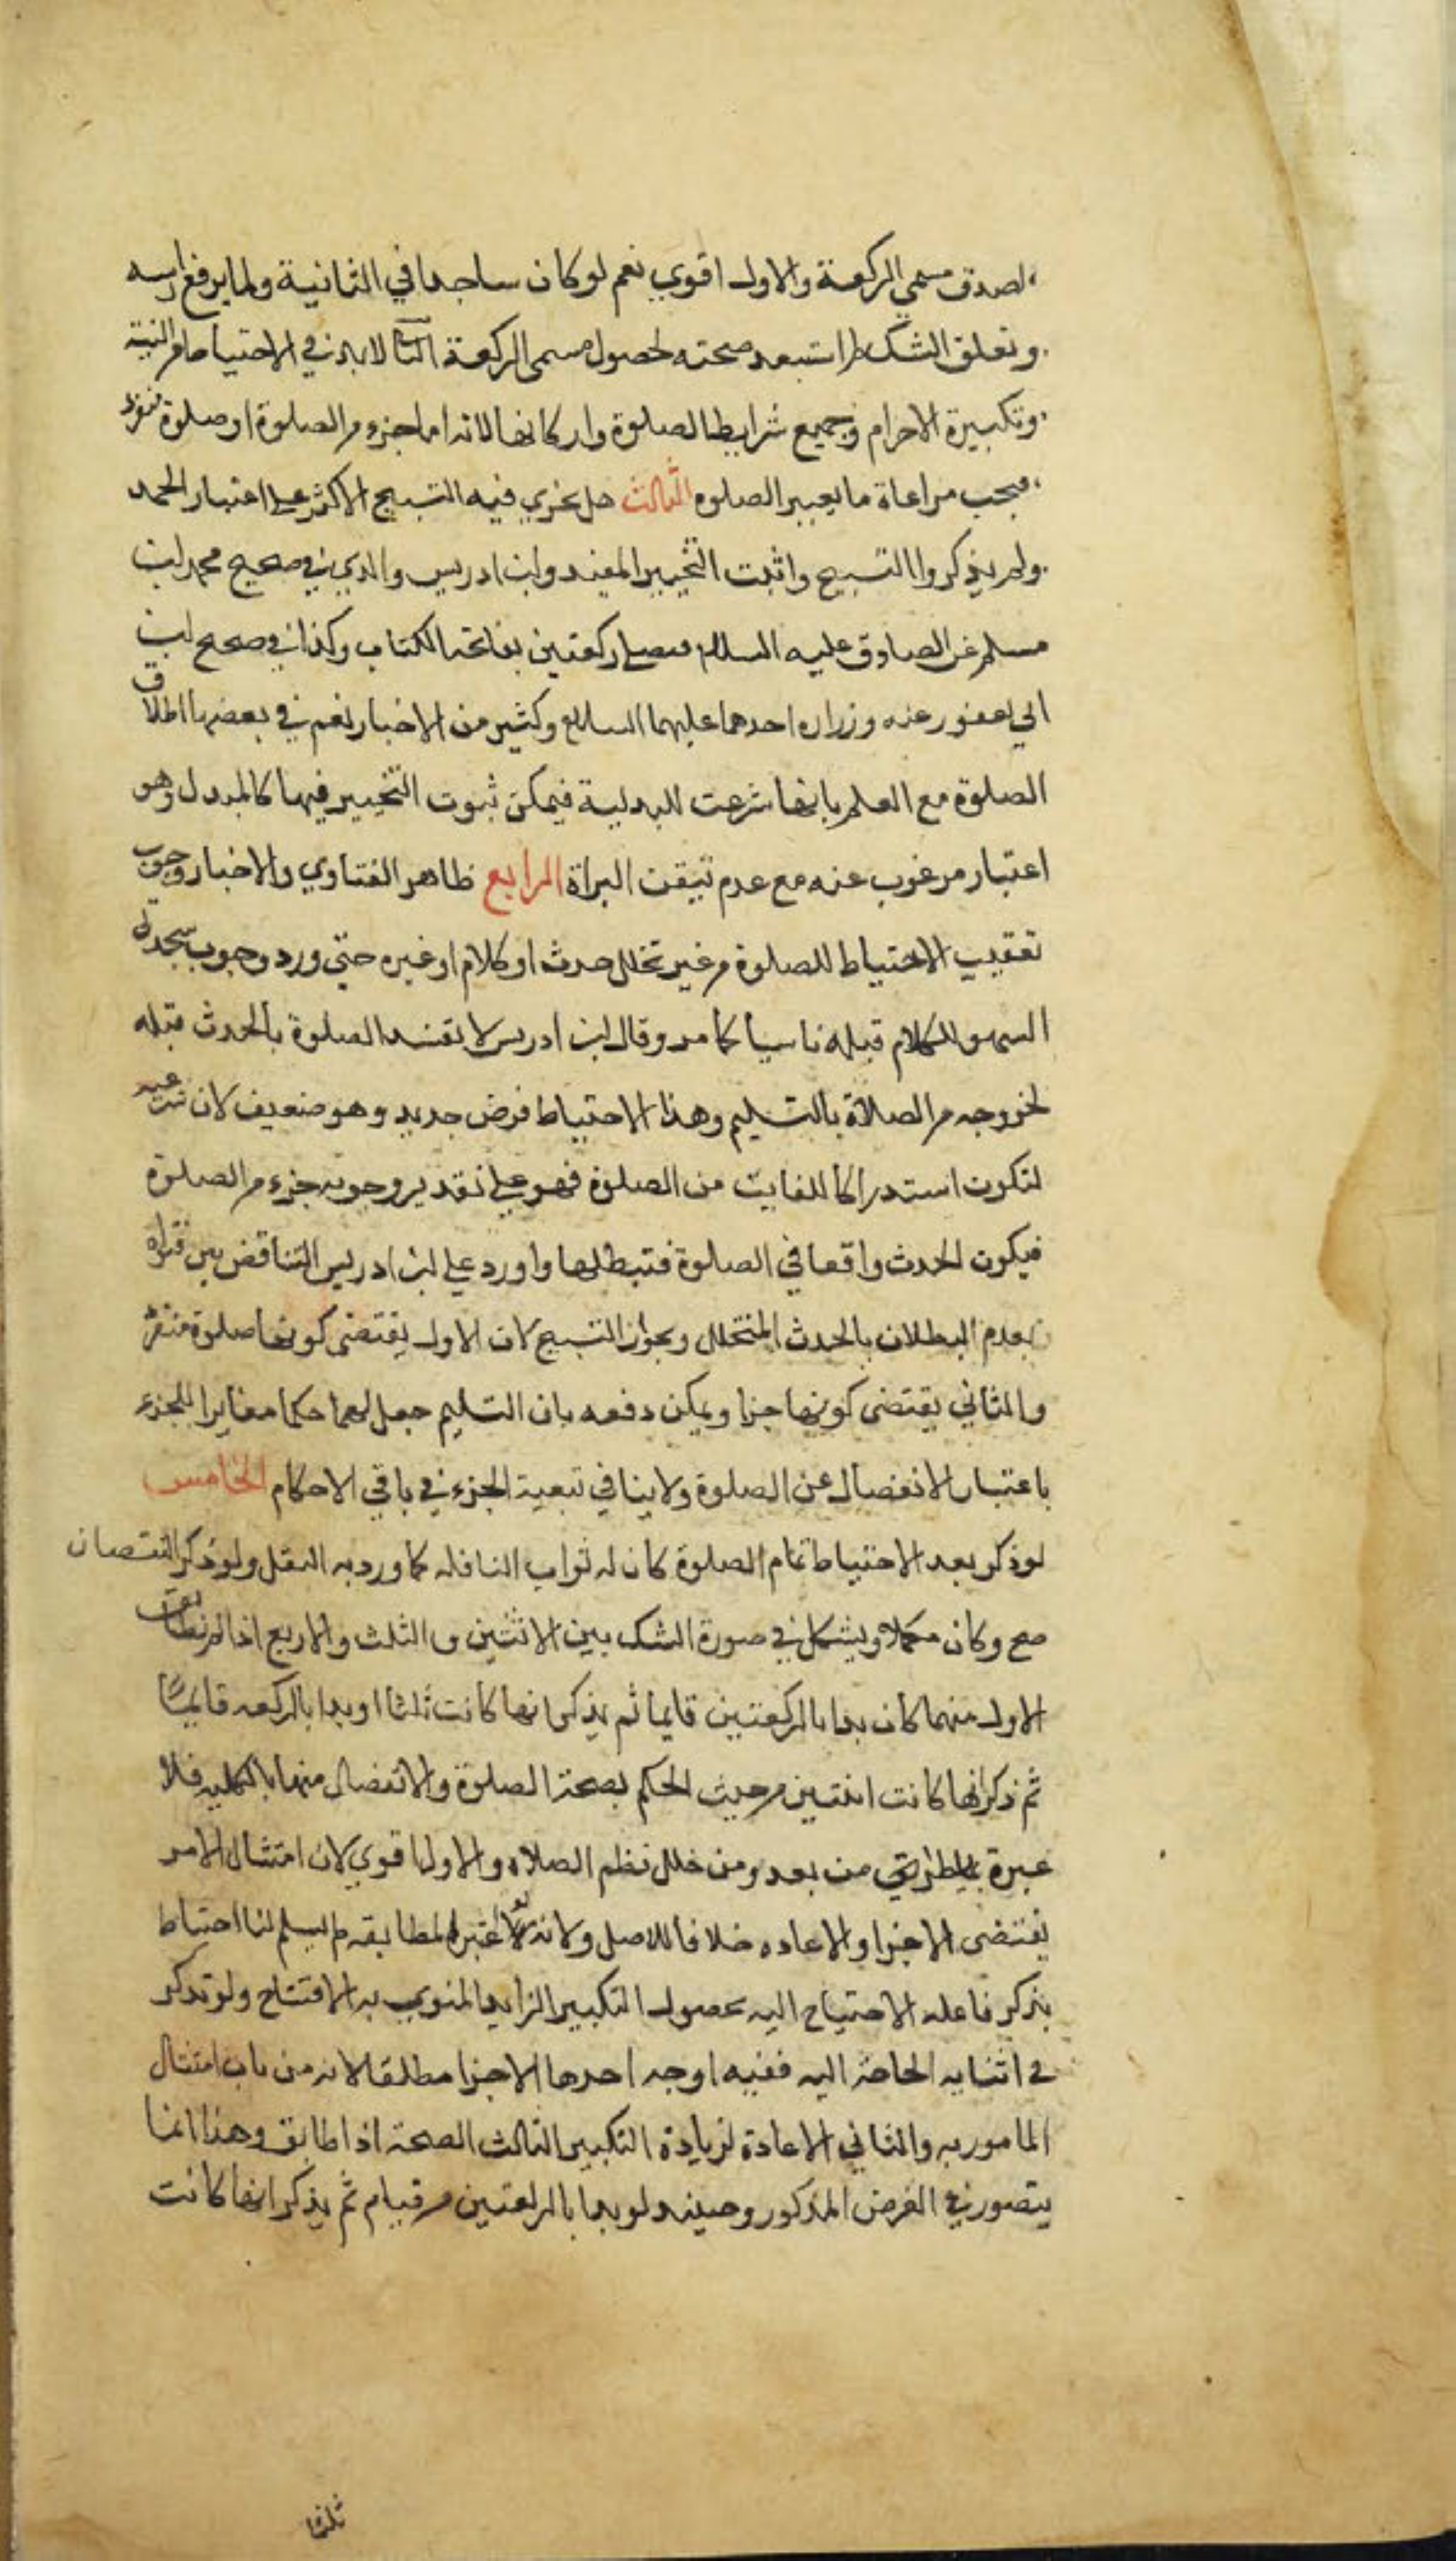 لصدق مسمي الركعة والاول اقوي نعم لو كان ساجدا في الثانية ولما يرفع راسه
وتعلق الشك لم استبعد صحته لحصول مسمي الركعة الثاني لابد في الاحتياط من النية
وتكبيرة الاحرام وجميع شرايط الصلوة واركانها لانه اما جزء من الصلوة او صلوة منفردة
فيجب مراعاة ما يعتبر الصلوه الثالث هل يجزي فيه التسبيح الاكثر على اعتبار الحمد
ولم يذكروا التسبيح واثبت التخيير المفيد وابن ادريس والذي في صحيح محمد ابن
مسلم عن الصادق عليه السلام فصلي ركعتين بفاتحة الكتاب وكذا في صحيح ابن
ابي يعفور عنه وزراره احدهما عليهما السلام وكثير من الاخبار نعم في بعضها اطلاق
الصلوة مع العلم بانها شرعت للبدلية فيمكن ثبوت التخيير فيها كالمبدل وهو
اعتبار مرغوب عنه مع عدم تيقن البراة الرابع ظاهر الفتاوي والاخبار وجوب
تعقيب الاحتياط للصلوة من غير تخلل حدث او كلام او غيره حتي ورد وجوب سجدتي
السهو للكلام قبله ناسيا كما مر وقال ابن ادريس لا تفسد الصلوة بالحدث قبله
لخروجه من الصلاة بالتسليم وهذا الاحتياط فرض جديد وهو ضعيف لان شرعيته
لتكون استدراكا للفايت من الصلوة فهو على تقدير وجوبه جزء من الصلوة
فيكون الحدث واقعا في الصلوة فتبطلها واورد علي ابن ادريس التناقض بين فتواه
بعدم البطلان بالحدث المتخلل وبجواز التسبيح لان الاول يقتضي كونها صلوة منفردة
والثاني يقتضي كونها جزا ويمكن دفعه بان التسليم جعل لهما حكما مغايرا للجزء
باعتبار الانفصال عن الصلوة ولاينافي تبعية الجزء في باقي الاحكام الخامس
لو ذكر بعد الاحتياط تمام الصلوة كان له ثواب النافله كما ورد به النقل ولو ذكر النقصان
صح وكان مكملا ويشكل في صورة الشك بين الاثنتين والثلث والاربع اذا لم يطابق
الاول منهما كان بدا بالركعتين قايما ثم يذكر انها كانت ثلثا او بدا بالركعه قايما
ثم ذكر انها كانت اثنتين من حيث الحكم بصحة الصلوة والانفصال منها بالكليه فلا
عبرة بالطراي من بعد ومن خلل نظم الصلاه والاول اقوي لان امتثال الامر
يقتضي الاجزا والاعاده خلافا للاصل ولانه لو اعتبر المطابقه لم يسلم لنا احتياط
بذكر فاعله الاحتياج اليه لحصول التكبير الزايد المنوي به الافتتاح ولو تذكر
في اثنايه الحاجة اليه ففيه اوجه احدها الاجزا مطلقا لانه من باب امتثال
المامور به والثاني الاعادة لزيادة التكبير الثالث الصحة اذا طابق وهذا انما
يتصور في الفرض المذكور وحينئذ لو بدا بالركعتين من قيام ثم يذكر انها كانت
ثلثا